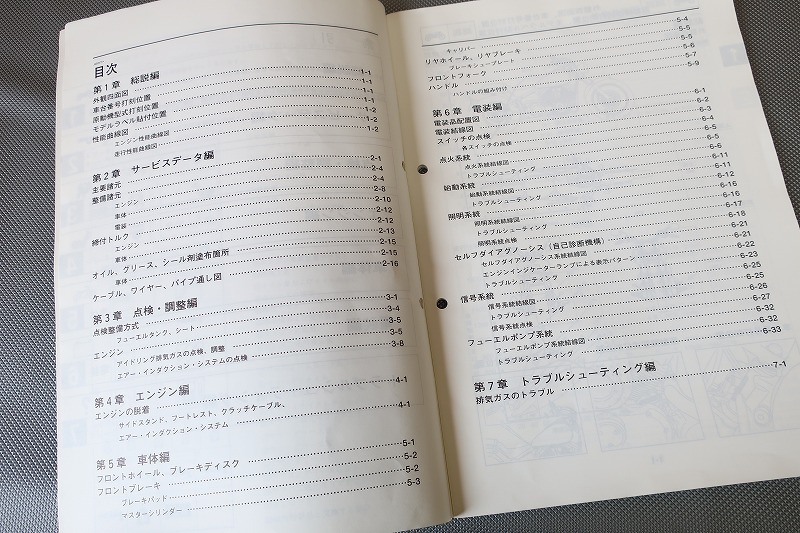 目次
第1章 総説編
外観四面図 1-1
車台番号打刻位置 1-1
原動機型式打刻位置 1-1
モデルラベル貼付位置 1-2
性能曲線図 1-2
エンジン性能曲線図
走行性能曲線図
第2章 サービスデータ編
主要諸元 2-1
整備諸元 2-4
エンジン 2-4
車体 2-8
電装 2-10
締付トルク 2-12
エンジン 2-12
車体 2-13
オイル、グリース、シール剤塗布箇所 2-15
ケーブル、ワイヤー、パイプ通し図 2-16
第3章 点検・調整編
点検整備方式 3-1
フューエルタンク、シート 3-4
エンジン 3-5
アイドリング排気ガスの点検、調整 3-5
エアー・インダクション・システムの点検 3-8
第4章 エンジン編
エンジンの脱着 4-1
サイドスタンド、フートレスト、クラッチケーブル、
エアー・インダクション・システム 4-1
第5章 車体編
フロントホイール、ブレーキディスク 5-1
フロントブレーキ 5-2
ブレーキパッド 5-2
マスターシリンダー 5-3
キャリパー 5-4
リヤホイール、リヤブレーキ 5-5
ブレーキシュープレート 5-6
フロントフォーク 5-7
ハンドル 5-9
ハンドルの組み付け
第6章 電装編
電装品配置図 6-1
電装結線図 6-2
スイッチの点検 6-3
各スイッチの点検 6-4
点火系統 6-5
点火系統結線図 6-5
トラブルシューティング 6-6
始動系統 6-11
始動系統結線図 6-11
トラブルシューティング 6-12
照明系統 6-16
照明系統結線図 6-16
トラブルシューティング 6-17
照明系統点検 6-18
セルフダイアグノーシス(自己診断機構) 6-21
セルフダイアグノーシス系統結線図 6-21
エンジンインジケーターランプによる表示パターン 6-22
トラブルシューティング 6-23
信号系統 6-25
信号系統結線図 6-25
トラブルシューティング 6-26
信号系統点検 6-27
フューエルポンプ系統 6-32
フューエルポンプ系統結線図 6-32
トラブルシューティング 6-33
第7章 トラブルシューティング編
排気ガスのトラブル 7-1